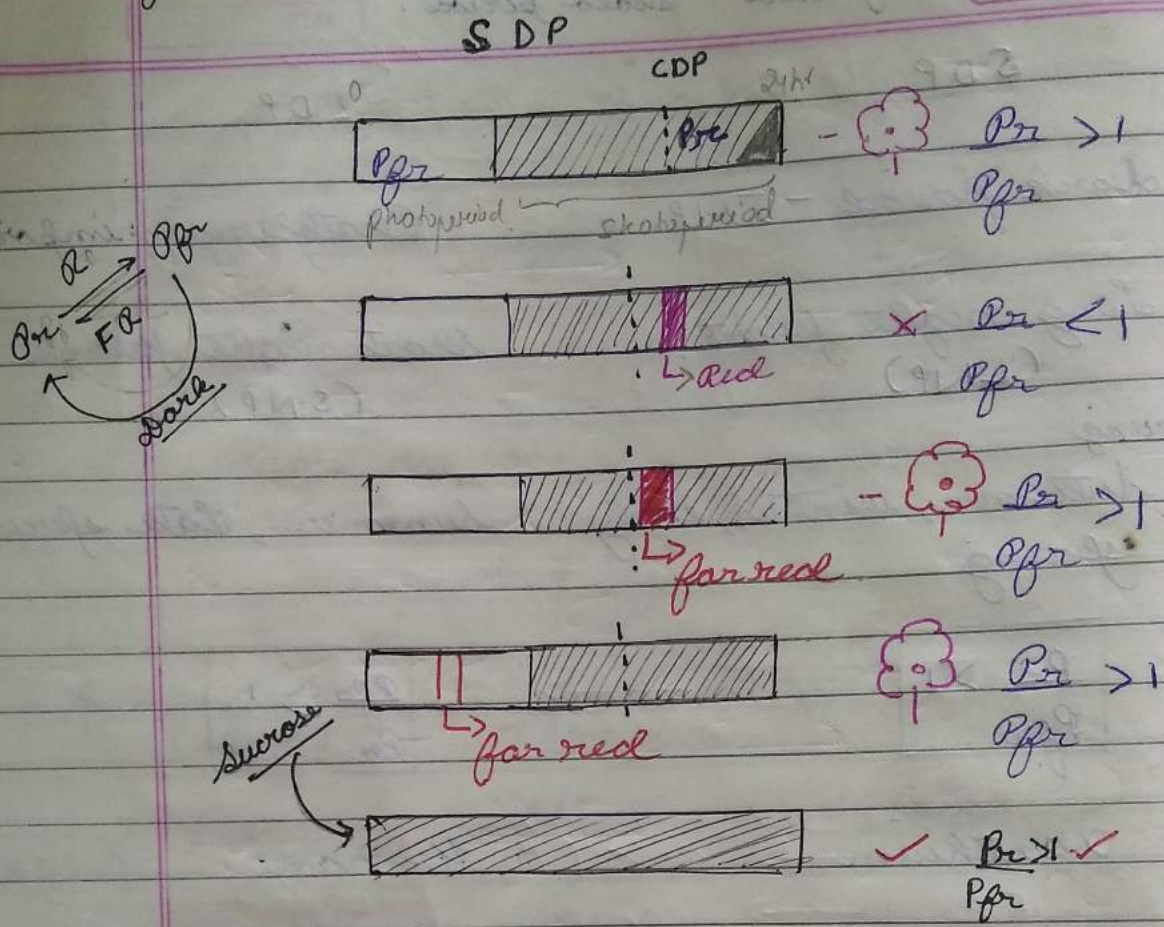 SDP
CDP
0 24hr
Pfr Pr Pr/Pfr >1
photoperiod skotoperiod
Pfr
R
Pr FR
Dark
Pr/Pfr <1
Red
Pr/Pfr >1
far red
Pr/Pfr >1
far red
Sucrose
Pr/Pfr >1